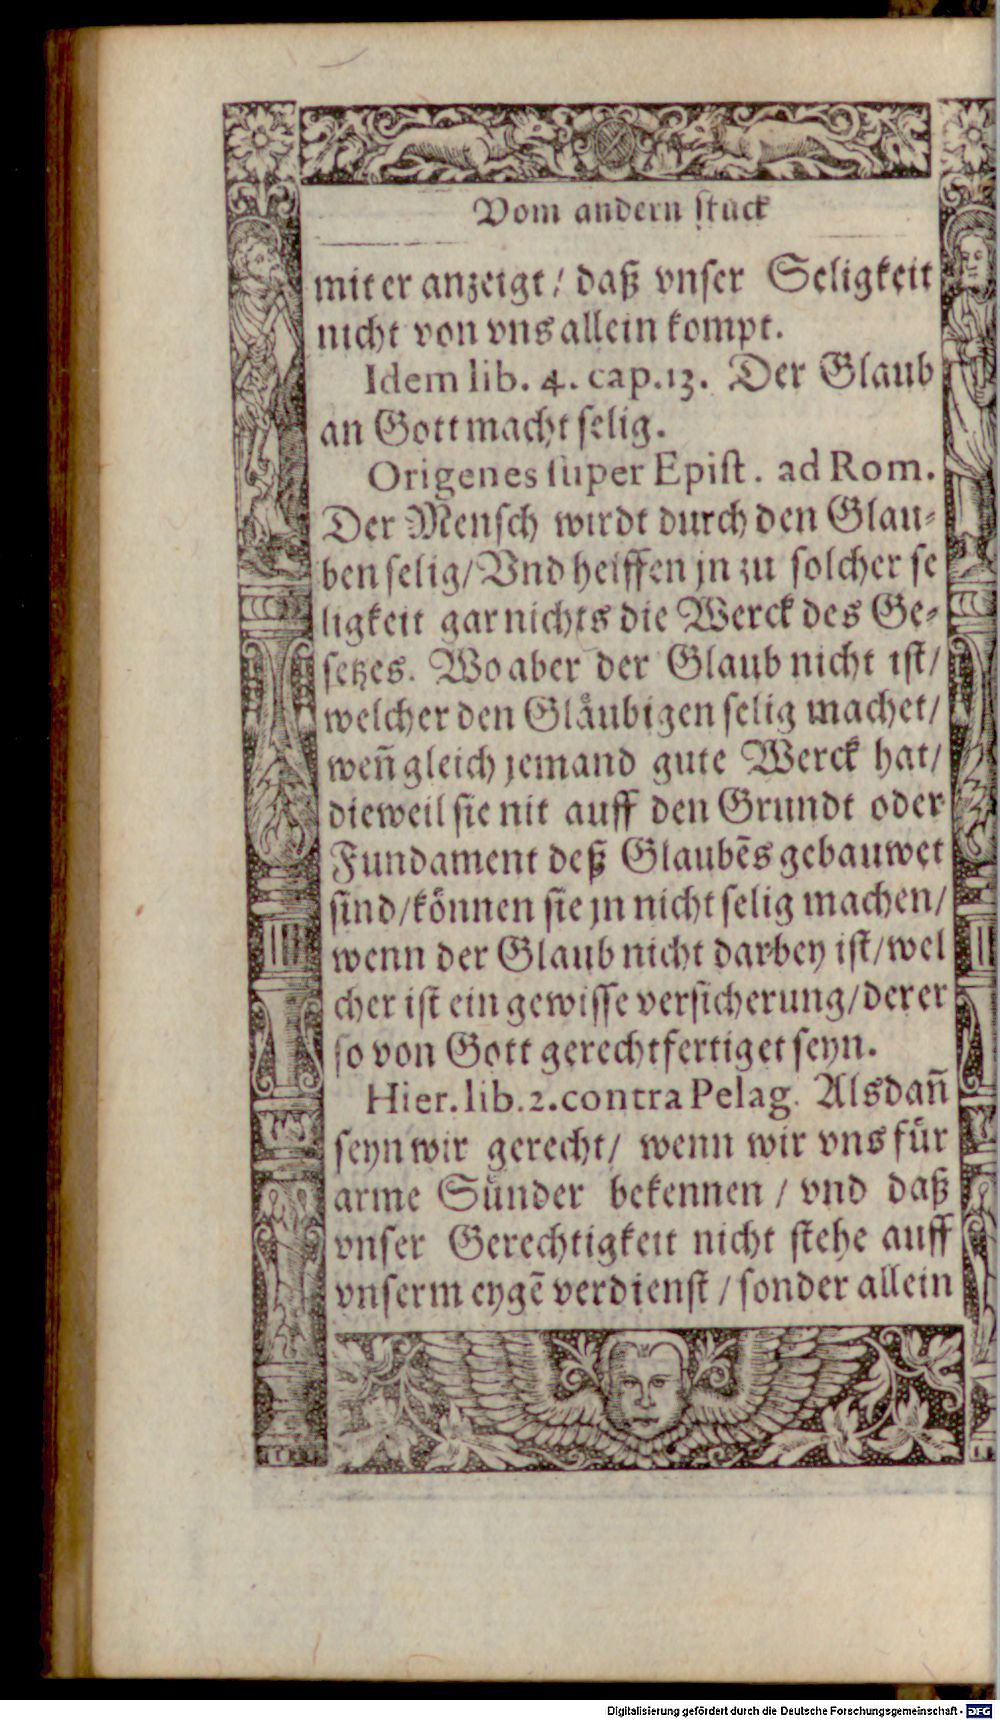 Vom andern stück
mit er anzeigt / daß vnser Seligkeit
nicht von vns allein kompt.
Idem lib. 4. cap. 13. Der Glaub
an Gott macht selig.
Origenes super Epist. ad Rom.
Der Mensch wirdt durch den Glau-
ben selig / Vnd helffen jn zu solcher se
ligkeit gar nichts die Werck des Ge-
setzes. Wo aber der Glaub nicht ist /
welcher den Glåubigen selig machet /
weñ gleich jemand gute Werck hat /
dieweil sie nit auff den Grundt oder
Fundament deß Glaubẽs gebauwet
sind / können sie jn nicht selig machen /
wenn der Glaub nicht darbey ist / wel
cher ist ein gewisse versicherung / derer
so von Gott gerechtfertiget seyn.
Hier. lib. 2. contra Pelag. Alsdañ
seyn wir gerecht / wenn wir vns für
arme Sünder bekennen / vnd daß
vnser Gerechtigkeit nicht stehe auff
vnserm eygẽ verdienst / sonder allein
Digitalisierung gefördert durch die Deutsche Forschungsgemeinschaft - DFG